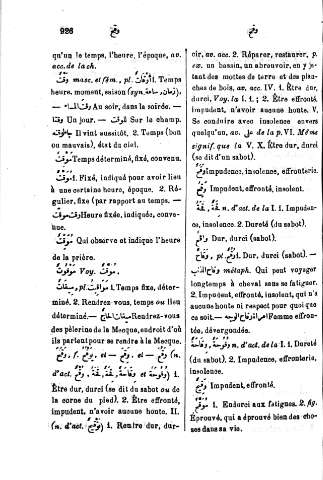 926
وقح
وقح
qu'un le temps, l'heure, l'époque, av.
acc. de la ch.
وَقْتٌ masc. et fém., pl. أَوْقَاتٌ 1. Temps
heure, moment, saison (syn. زمان, ساعة).
— المساء Au soir, dans la soirée. —
وقتا Un jour. — الوقت Sur le champ.
Il vint aussitôt. 2. Temps (bon
ou mauvais), état du ciel.
Temps déterminé, fixé, convenu.
1. Fixé, indiqué pour avoir lieu
à une certaine heure, époque. 2. Ré-
gulier, fixé (par rapport au temps. —
Heure fixée, indiquée, conve-
nue.
مُوَقِّتٌ Qui observe et indique l'heure
de la prière.
مَوْقُوتٌ Voy. مُوَقَّتٌ.
مِيقَاتٌ pl. مَوَاقِيتُ 1. Temps fixé, déter-
miné. 2. Rendez-vous, temps ou lieu
déterminé. — ميقات الحاج Rendez-vous
des pèlerins de la Mecque, endroit d'où
ils partent pour se rendre à la Mecque.
وَقَحَ, f. يَقِحُ et — وَقِحَ et — وَقُحَ (n.
d'act. 1.
Être dur, durci (se dit du sabot ou de
la corne du pied). 2. Être effronté,
impudent, n'avoir aucune honte. II.
(n. d'act. تَوْقِيحٌ) 1. Rendre dur, dur-
cir, av. acc. 2. Réparer, restaurer, p.
ex. un bassin, un abreuvoir, en y je-
tant des mottes de terre et des plan-
ches de bois, av. acc. IV. 1. Être dur,
durci, Voy. la I. 1; 2. Être effronté,
impudent, n'avoir aucune honte. V.
Se conduire avec insolence envers
quelqu'un, av. على de la p. VI. Même
signif. que la V. X. Être dur, durci
(se dit d'un sabot).
Impudence, insolence, effronterie.
وَقِحٌ Impudent, effronté, insolent.
قِحَةٌ, قَحَةٌ n. d'act. de la I. 1. Impuden-
ce, insolence. 2. Dureté (du sabot).
وَاقِحٌ Dur, durci (sabot).
وَقَاحٌ pl. وُقُحٌ 1. Dur, durci (sabot). —
وقاح الذنب métaph. Qui peut voyager
longtemps à cheval sans se fatiguer.
2. Impudent, effronté, insolent, qui n'a
aucune honte ni respect pour quoi que
ce soit. — امرأة وقاح الوجه Femme effron-
tée, dévergondée.
وَقَاحَةٌ, وُقُوحَةٌ n. d'act. de la I. 1. Dureté
(du sabot). 2. Impudence, effronterie,
insolence.
وَقِيحٌ Impudent, effronté.
مُوَقَّحٌ 1. Endurci aux fatigues. 2. fig.
Éprouvé, qui a éprouvé bien des cho-
ses dans sa vie.